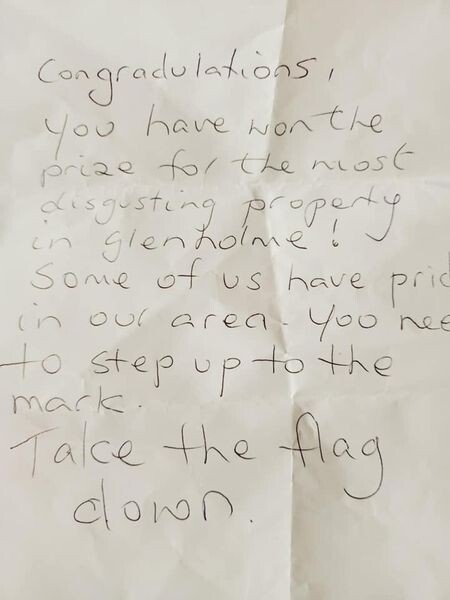 Congradulations,
you have won the
prize for the most
disgusting property
in glenholme!
Some of us have prid
in our area. You nee
to step up to the
mark.
Take the flag
down.